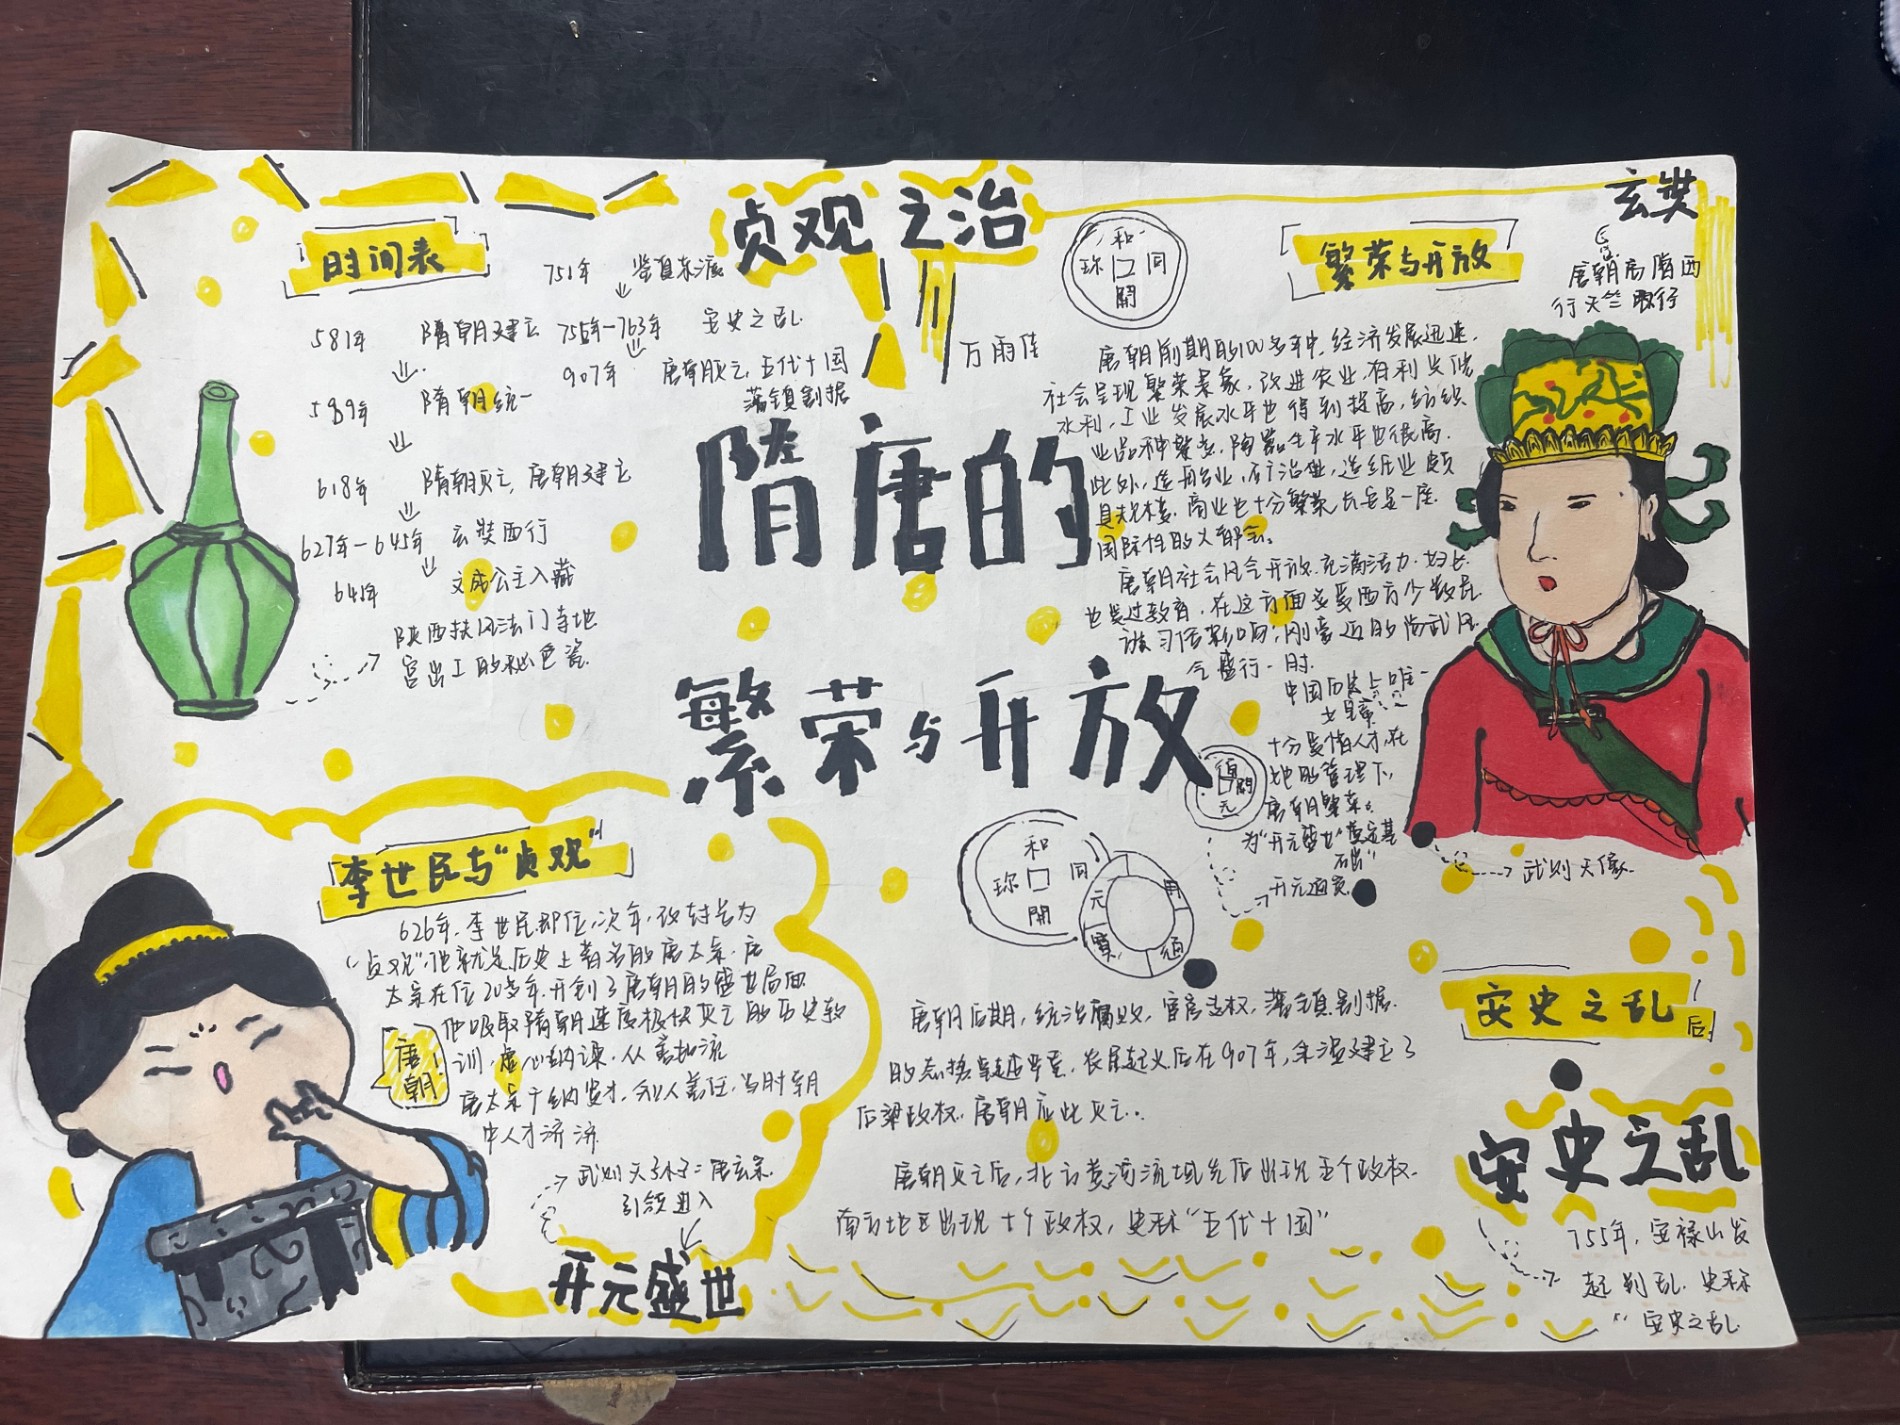 贞观之治
玄奘
唐朝高僧西
行天竺取经
时间表
581年 隋朝建立
589年 隋朝统一
618年 隋朝灭亡,唐朝建立
627年-645年 玄奘西行
641年 文成公主入藏
751年 鉴真东渡
755年-763年 安史之乱
907年 唐朝灭亡,五代十国
藩镇割据
陕西扶风法门寺地
宫出土的秘色瓷
万雨佳
隋唐的
繁荣与开放
和
珎 同
開
繁荣与开放
唐朝前期的100多年中,经济发展迅速,
社会呈现繁荣景象,改进农业,有利兴修
水利,工业发展水平也得到提高,纺织
业品种繁多,陶器生产水平也很高.
此外,造船业,矿冶业,造纸业颇
具规模,商业也十分繁荣,长安是一座
国际性的大都会。
唐朝社会风气开放,充满活力,妇女
也受过教育,在这方面多受西方少数民
族习俗影响,刚豪迈的尚武风
气盛行一时.
中国历史上唯一
女皇帝
十分爱惜人才,在
她的管理下,
唐朝繁荣。
为"开元盛世"奠定基
石出"
开元通宝
武则天像.
和
珎 同
開
元
李世民与"贞观"
626年,李世民即位,次年,改封号为
"贞观",他就是历史上著名的唐太宗.唐
太宗在位20多年,开创了唐朝的盛世局面
他吸取隋朝速度极快灭亡的历史教
训,虚心纳谏,从善如流
唐太宗广纳贤才,知人善任,当时朝
中人才济济.
唐朝!
武则天孙子:唐玄宗.
引领进入
开元盛世
唐朝后期,统治腐败,宦官专权,藩镇割据.
的态势越严重,农民起义后在907年,朱温建立了
后梁政权,唐朝应此灭亡..
唐朝灭亡后,北方黄河流域先后出现五个政权.
南方地区出现十个政权,史称"五代十国"
安史之乱
后
安史之乱
755年,安禄山发
起叛乱.史称
"安史之乱